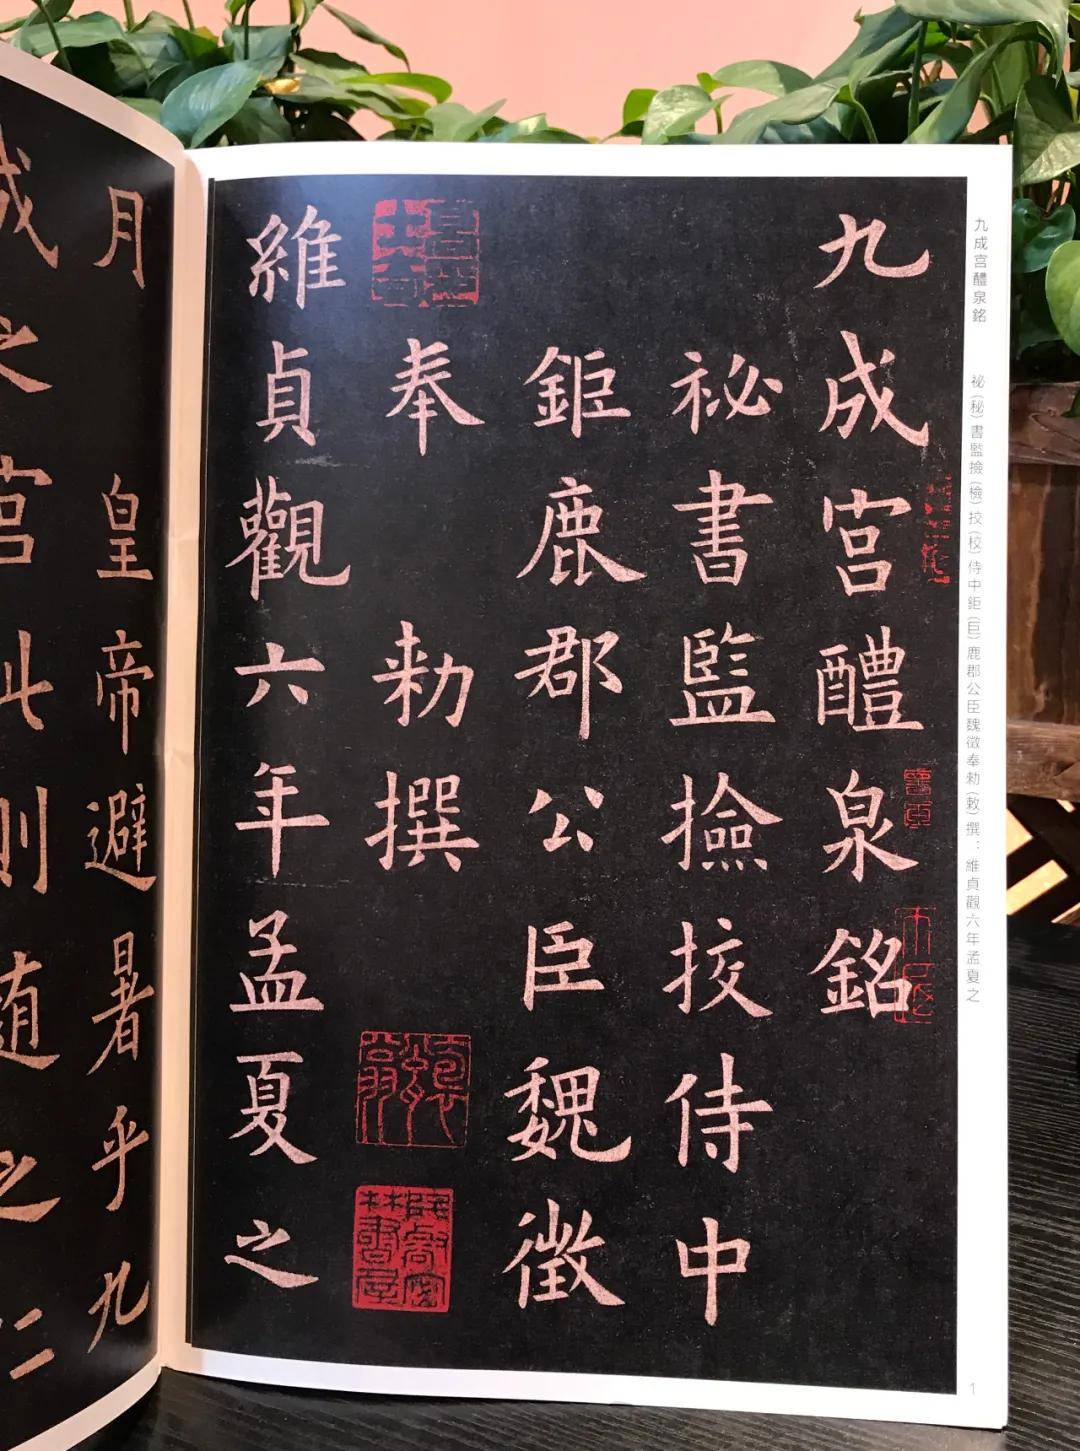 九成宫醴泉銘
祕書監撿挍侍中
鉅鹿郡公臣魏徵
奉勑撰
維貞觀六年孟夏之
月皇帝避暑乎九
成之宫此則随之仁
九成宫醴泉銘
祕(秘)書監撿(檢)挍(校)侍中鉅(巨)鹿郡公臣魏徵奉勑(敕)撰：維貞觀六年孟夏之
1